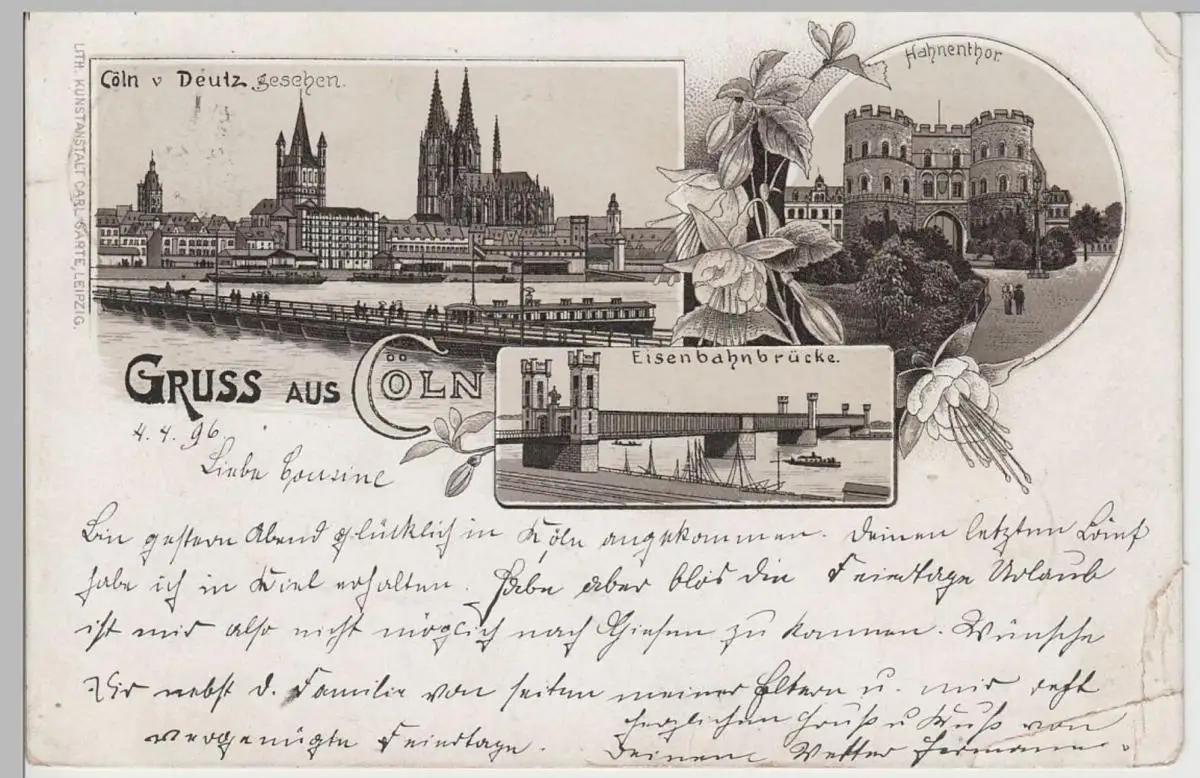 LITH. KUNSTANSTALT CARL GARTE, LEIPZIG.
Cöln v Deutz gesehen.
Hahnenthor.
Eisenbahnbrücke.
GRUSS AUS CÖLN
4.4.96
Liebe Cousine
Bin gestern Abend glücklich in Köln angekommen. Deinen letzten Brief
habe ich in Kiel erhalten. Habe aber blos die Feiertage Urlaub
ist mir also nicht möglich nach Giesen zu kommen. Wünsche
Dir nebst d. Familie von seiten meiner Eltern u. mir recht
vergnügte Feiertage.
herzlichen Gruß u Kuß von
Deinem Vetter Hermann.